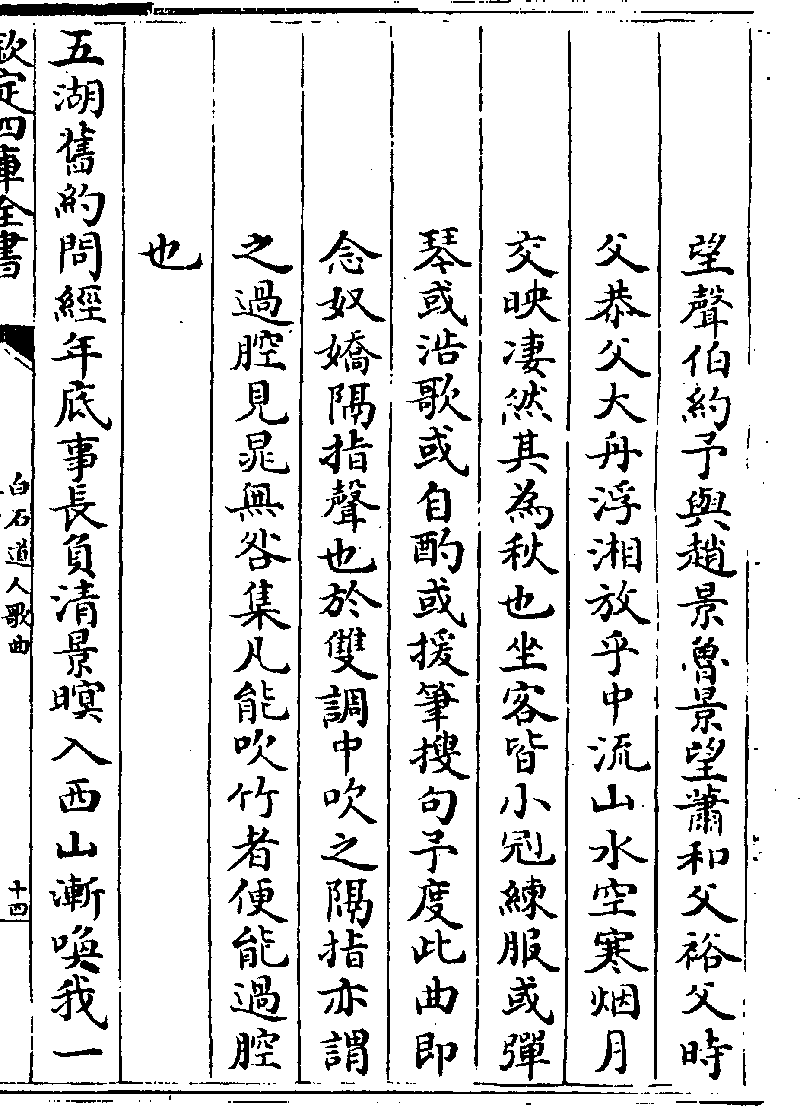 望聲伯約予與趙景魯景望蕭和父裕父時
父恭父大舟浮湘放乎中流山水空寒烟月
交映凄然其為秋也坐客皆小冠練服或彈
琴或浩歌或自酌或援筆搜句予度此曲即
念奴嬌隔指聲也於雙調中吹之隔指亦謂
之過腔見晁無咎集凡能吹竹者便能過腔
也
五湖舊約問經年底事長負清景暝入西山漸喚我一
欽定四庫全書
白石道人歌曲
十四